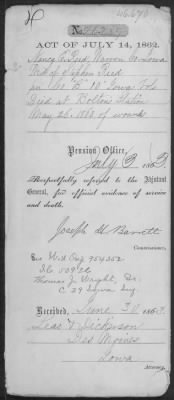 46.670
ACT OF JULY 14, 1862.
Nancy Reed, Warren Co. Iowa
Wid. of Stephen Reed
in Co. " 10" Iowa Vols
Died at Bolton Station
May 26, 1863 of wounds
Pension Office,
July 3 1863
Respectfully referred to the Adjutant
General, for official evidence of service
and death.
Joseph H Barrett
Commissioner.
See Wid Org 954352
Thomas J. Wright, Dec
C 29 Iowa Inf.
Received, June 30 1863
Leas & Dickinson
Des Moines
Iowa
Attorney.